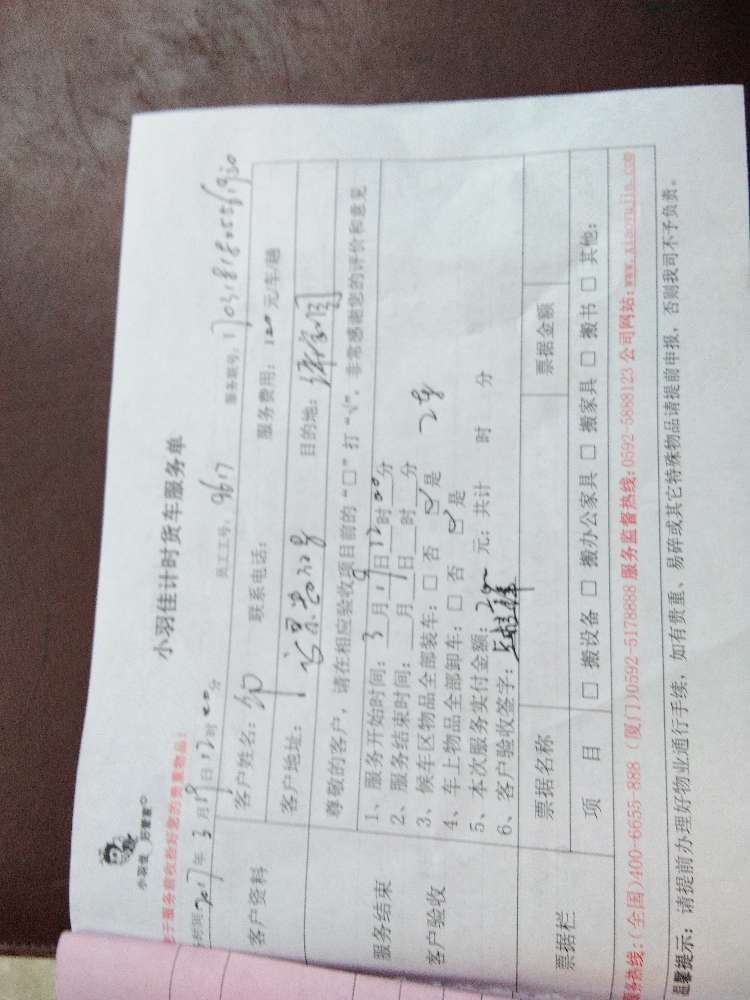 小羽佳 形象章
小羽佳计时货车服务单
于服务前收拾好您的贵重物品！
时间：2017年3月19日12时00分 员工工号：9617 服务票号：
客户资料 客户姓名： 联系电话： 服务费用：120元/车/趟
客户地址： 目的地：
尊敬的客户，请在相应验收项目前的“□”打“√”，非常感谢您的评价和意见
服务结束
客户验收
1、服务开始时间：3月19日12时00分
2、服务结束时间：__月__日__时__分
3、候车区物品全部装车：□ 否 ☑ 是
4、车上物品全部卸车：□ 否 ☑ 是
5、本次服务实付金额： 元；共计 时 分
6、客户验收签字：
票据栏 票据名称 票据金额
项目 □ 搬设备 □ 搬办公家具 □ 搬家具 □ 搬书 □ 其他：
服务热线：(全国)400-6655-888 (厦门)0592-5178888 服务监督热线：0592-5888123 公司网站：www.xiaoyujia.com
温馨提示：请提前办理好物业通行手续，如有贵重、易碎或其它特殊物品请提前申报，否则我司不予负责。